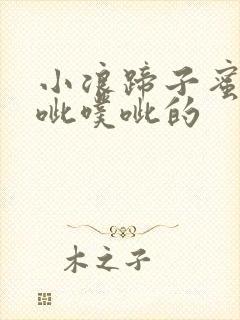 小浪蹄子蜜
呲噗呲的
木之子